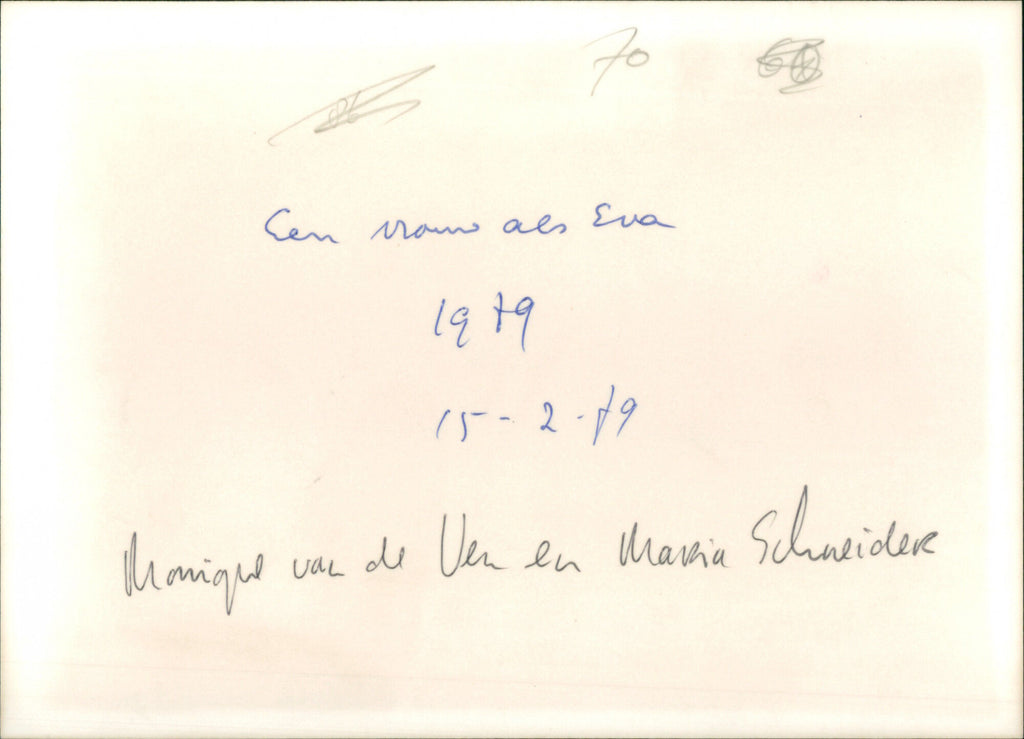 70
Een vrouw als Eva
1979
15-2-79
Monique van de Ven en Maria Schneider